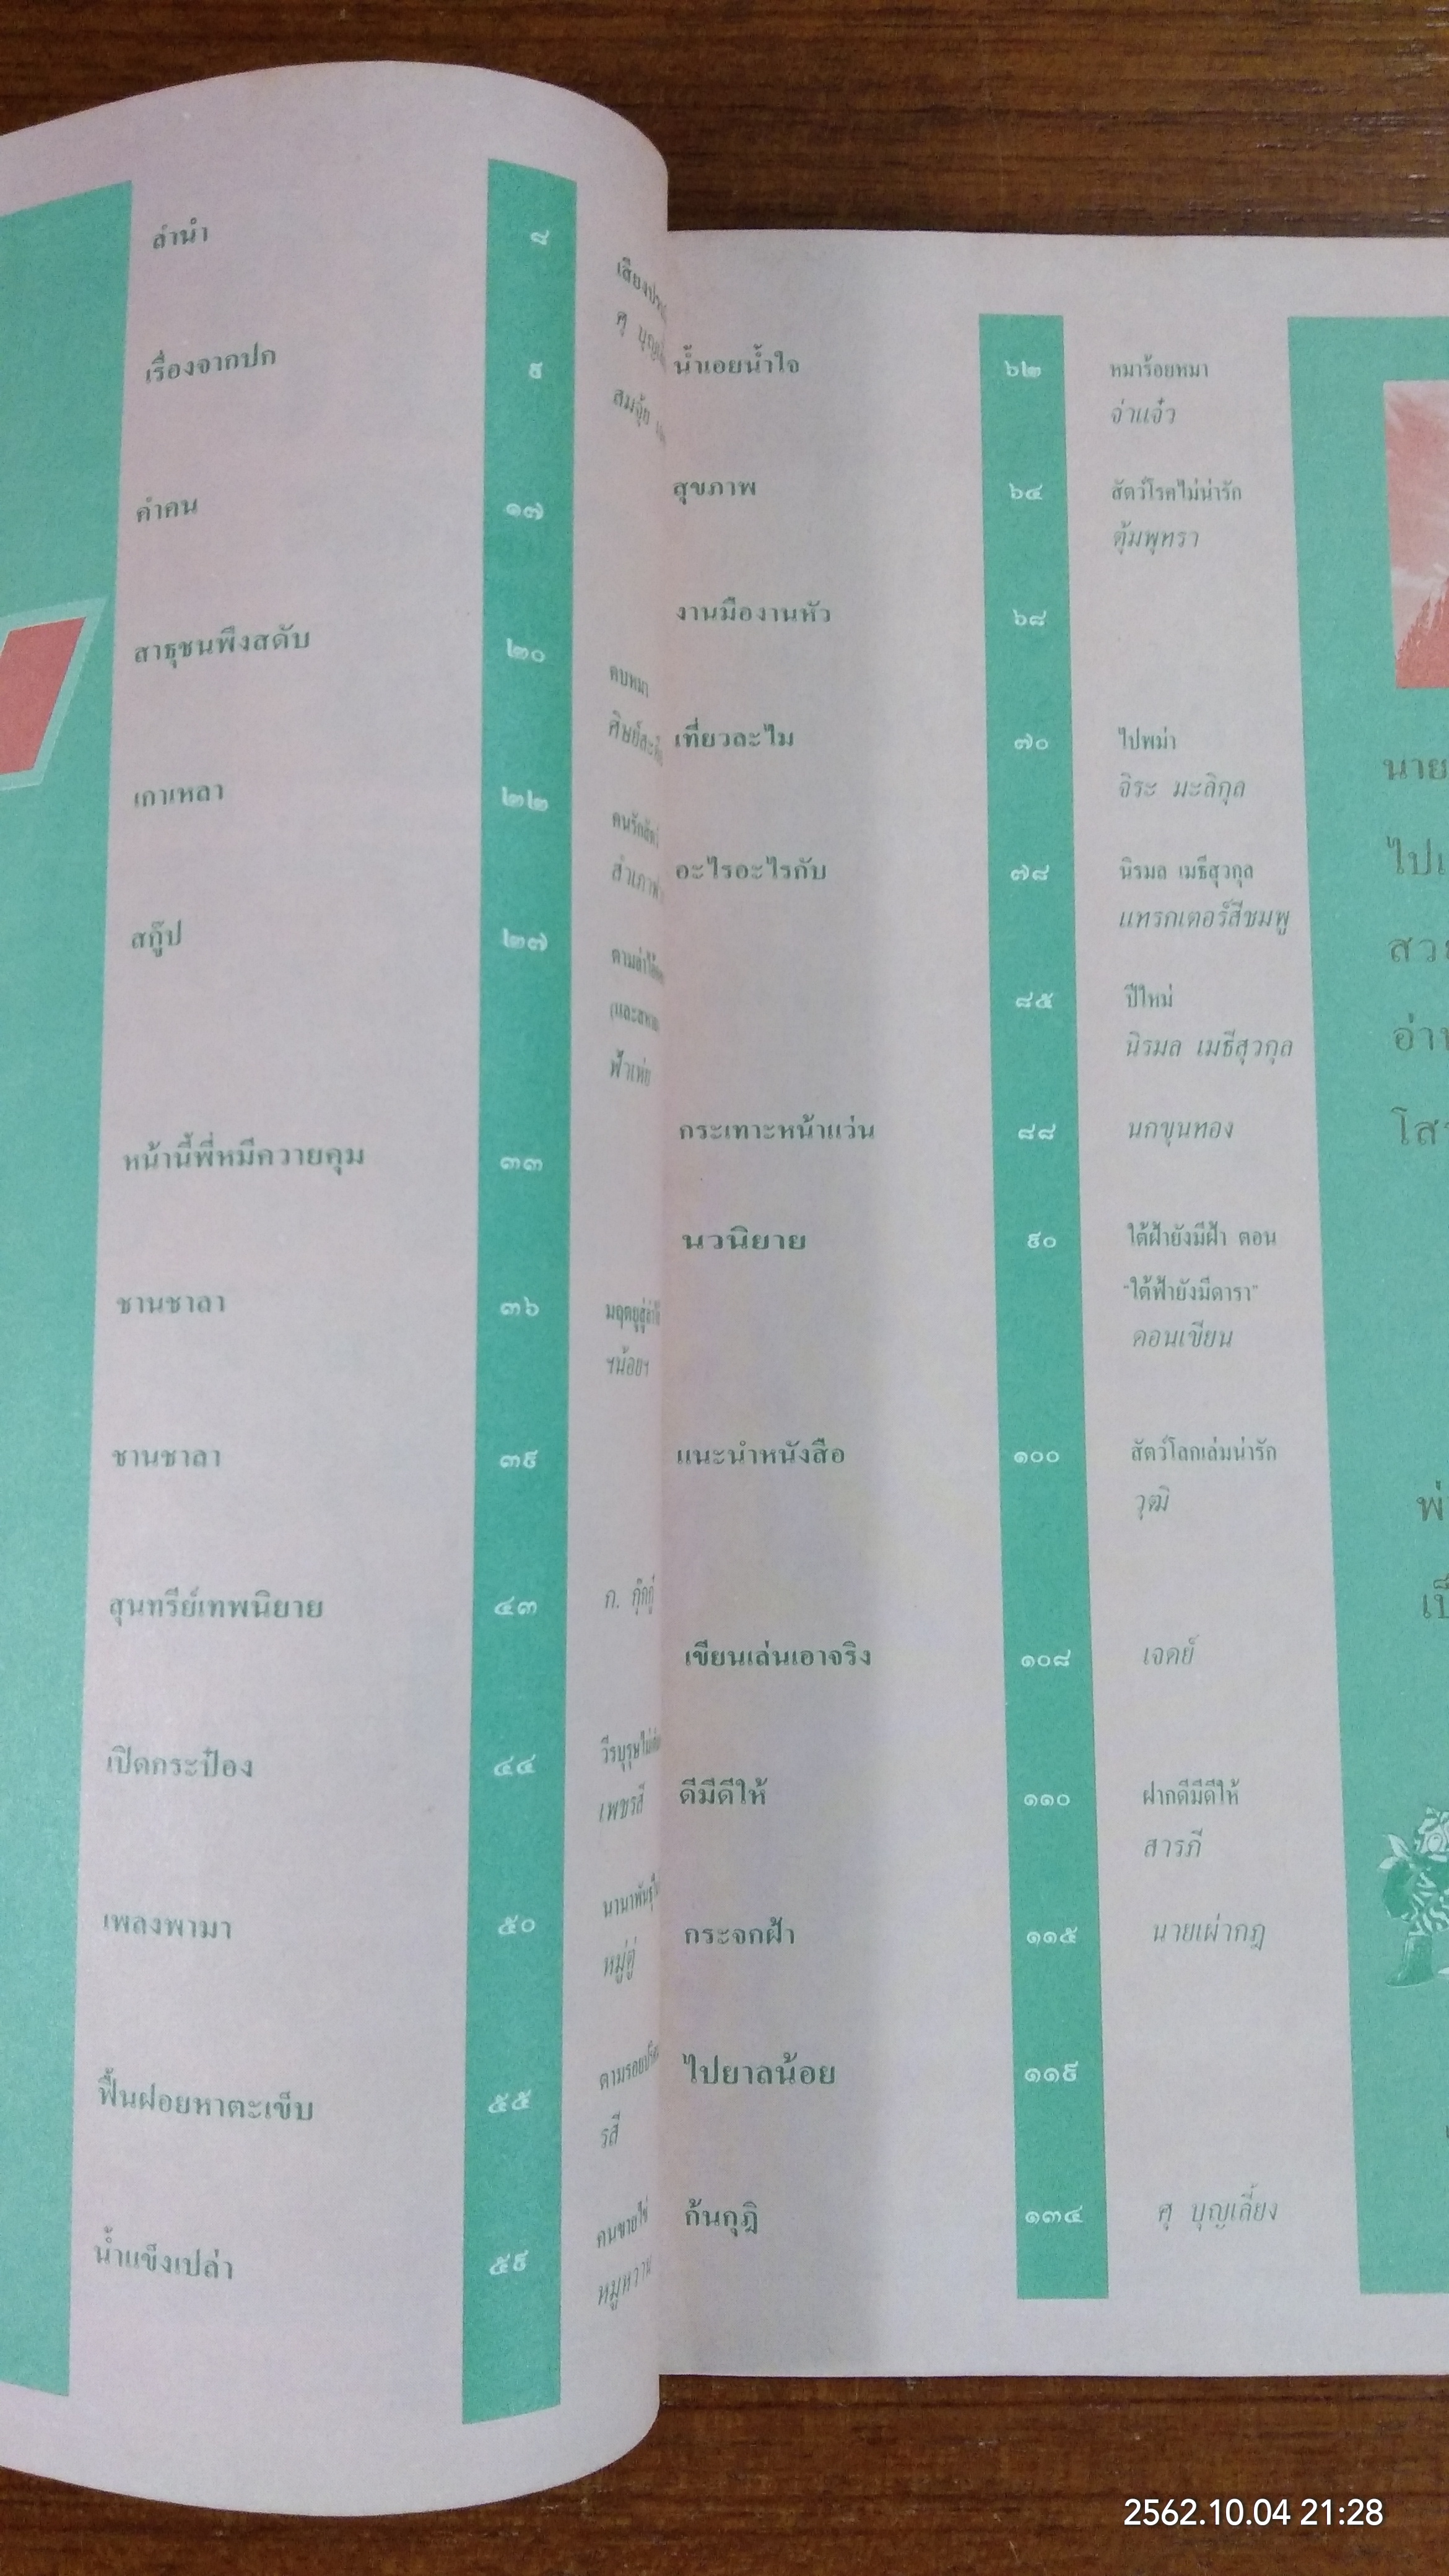 ลำนำ ๘
เรื่องจากปก ๙
ศุ
สมจุ้ย
คำคน ๑๗
สาธุชนพึงสดับ ๒๐
คบหมา
เกาเหลา ๒๒
สกู๊ป ๒๗
หน้านี้พี่หมีควายคุม ๓๓
ชานชาลา ๓๖
ฯน้อยฯ
ชานชาลา ๓๙
สุนทรีย์เทพนิยาย ๔๓
ก. กุ๊กกู๋
เปิดกระป๋อง ๔๔
เพลงพามา ๕๐
ฟื้นฝอยหาตะเข็บ ๕๕
รสี
น้ำแข็งเปล่า ๕๙
คนขายไข่
หมูหวาน
น้ำเอยน้ำใจ ๖๒ หมาร้อยหมา
จ่าแจ๋ว
สุขภาพ ๖๔ สัตว์โรคไม่น่ารัก
ตุ้มพุทรา
งานมืองานหัว ๖๘
เที่ยวละไม ๗๐ ไปพม่า
จิระ มะลิกุล
อะไรอะไรกับ ๗๘ นิรมล เมธีสุวกุล
แทรกเตอร์สีชมพู
๘๕ ปีใหม่
นิรมล เมธีสุวกุล
กระเทาะหน้าแว่น ๘๘ นกขุนทอง
นวนิยาย ๙๐ ใต้ฝ้ายังมีฝ้า ตอน
"ใต้ฟ้ายังมีดารา"
คอนเขียน
แนะนำหนังสือ ๑๐๐ สัตว์โลกเล่มน่ารัก
วุฒิ
เขียนเล่นเอาจริง ๑๐๘ เจตย์
ดีมีดีให้ ๑๑๐ ฝากดีมีดีให้
สารภี
กระจกฝ้า ๑๑๕ นายเผ่ากฎ
ไปยาลน้อย ๑๑๙
ก้นกุฏิ ๑๓๔ ศุ บุญเลี้ยง
นาย
2562.10.04 21:28